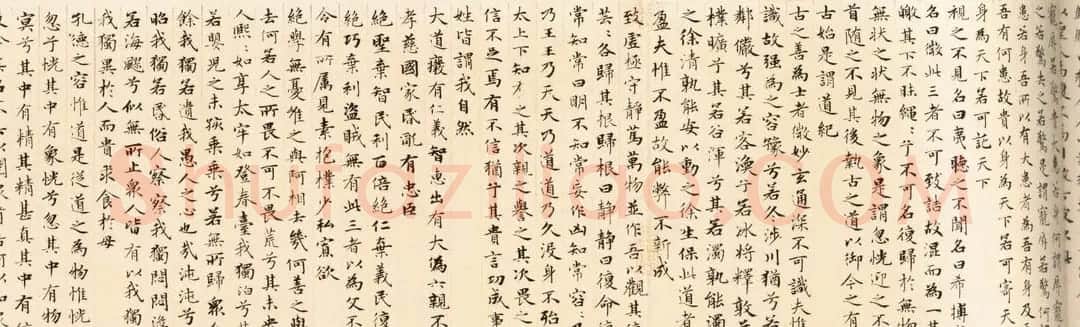 之若驚失之若驚是謂寵辱若驚何
患若身吾所以有大患者為吾有身及
吾有何患故貴以身為天下若可寄天
身為天下若可託天下
視之不見名曰夷聽之不聞名曰希搏
名曰微此三者不可致詰故混而為一
皦其下不昧繩〻兮不可名復歸於無物
無狀之狀無物之象是謂忽恍迎之不
首隨之不見其後執古之道以御今之有
古始是謂道紀
古之善為士者微妙玄通深不可識夫惟
識故強為之容豫兮若冬涉川猶兮若
鄰儼兮其若客渙兮若冰將釋敦兮
樸曠兮其若谷渾兮其若濁孰能濁
之徐清孰能安以動之徐生保此道者
盈夫惟不盈故能弊不新成
致虛極守靜篤萬物並作吾以觀其
芸〻各歸其根歸根曰靜靜曰復命
常知常曰明不知常妄作凶知常容
乃王王乃天天乃道道乃久沒身不殆
太上下知之其次親之譽之其次畏之
信不足焉有不信猶兮其貴言功成事
姓皆謂我自然
大道廢有仁義智惠出有大偽六親不
孝慈國家昏亂有忠臣
絕聖棄智民利百倍絕仁棄義民復
絕巧棄利盜賊無有此三者以為文不
令有所屬見素抱樸少私寡欲
絕學無憂唯之與阿相去幾何善之與
去何若人之所畏不可不畏荒兮其未央
人熙〻如享太牢如登春臺我獨泊兮其
若嬰兒之未孩乘乘兮若無所歸眾人
餘我獨若遺我愚人之心也哉沌沌兮
昭我獨若昏俗人察察我獨悶悶澹
若海飂兮似無所止眾人皆有以我獨
我獨異於人而貴求食於母
孔德之容惟道是從道之為物惟恍
忽兮恍其中有象恍兮忽其中有物
冥兮其中有精其精甚真其中有信
Shufaziliao.COM